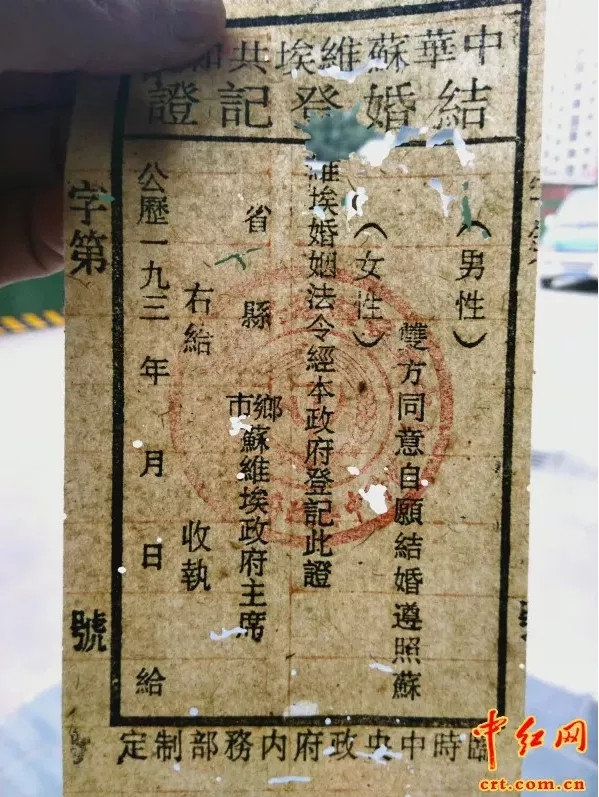 中華蘇維埃共和
結婚登記證
（男性）
（女性）
雙方同意自願結婚遵照蘇
維埃婚姻法令經本政府登記此證
省 縣 鄉市蘇維埃政府主席
右給 收執
公歷一九三 年 月 日 給
字第 號
臨時中央政府內務部制定
中红网
crt.com.cn